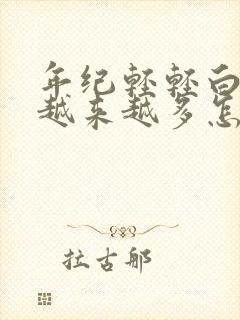 年纪轻轻白
越来越多怎
拉古那